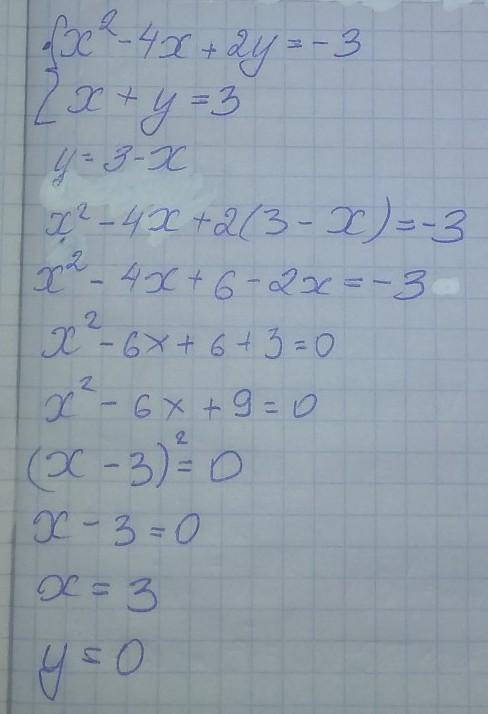 {x² - 4x + 2y = -3
x + y = 3
y = 3 - x
x² - 4x + 2(3 - x) = -3
x² - 4x + 6 - 2x = -3
x² - 6x + 6 + 3 = 0
x² - 6x + 9 = 0
(x - 3)² = 0
x - 3 = 0
x = 3
y = 0